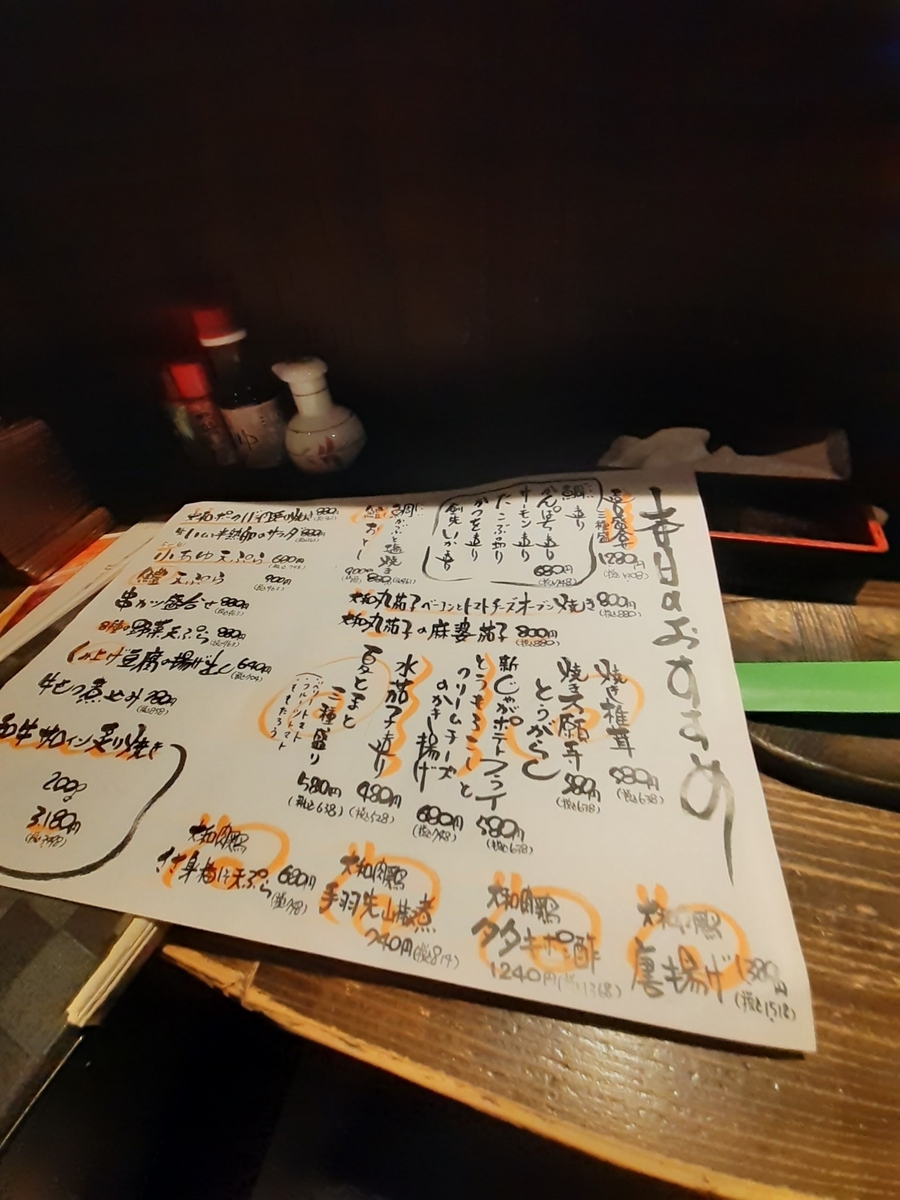 春日のおすすめ
1280円
鯛造り
かんぱち造り
サーモン造り
たこぶつ造り
かつを造り
剣先いか造り
680円
(税込748)
大和丸茄子ベーコンとトマトチーズオーブン焼き 800円
(税込880)
大和丸茄子の麻婆茄子 800円
(税込880)
焼き椎茸
580円
(税込638)
焼き大願寺
とうがらし
580円
(税込638)
新じゃがポテトフライ
580円
(税込638)
とうもろこしと
クリームチーズ
のかき揚げ
680円
(税込748)
水茄子造り
480円
(税込528)
夏とまと
三種盛り
フルーツトマト
ももたろう
580円
(税込638)
半熟卵のサラダ
小あゆ天ぷら 680円
(税込748)
鱧天ぷら
串カツ盛合せ 880円
野菜天ぷら 880円
くみ上げ豆腐の揚げ出し 640円
(税込704)
牛もつ煮込み 780円
(税込858)
サーロイン炙り焼き
200g
3180円
大和肉鶏
ささ身梅しそ天ぷら 680円
(税込748)
大和肉鶏
手羽先山椒煮
740円(税込814)
大和肉鶏
タタキポン酢
1240円(税込1368)
大和肉鶏
唐揚げ 1380円
(税込1518)